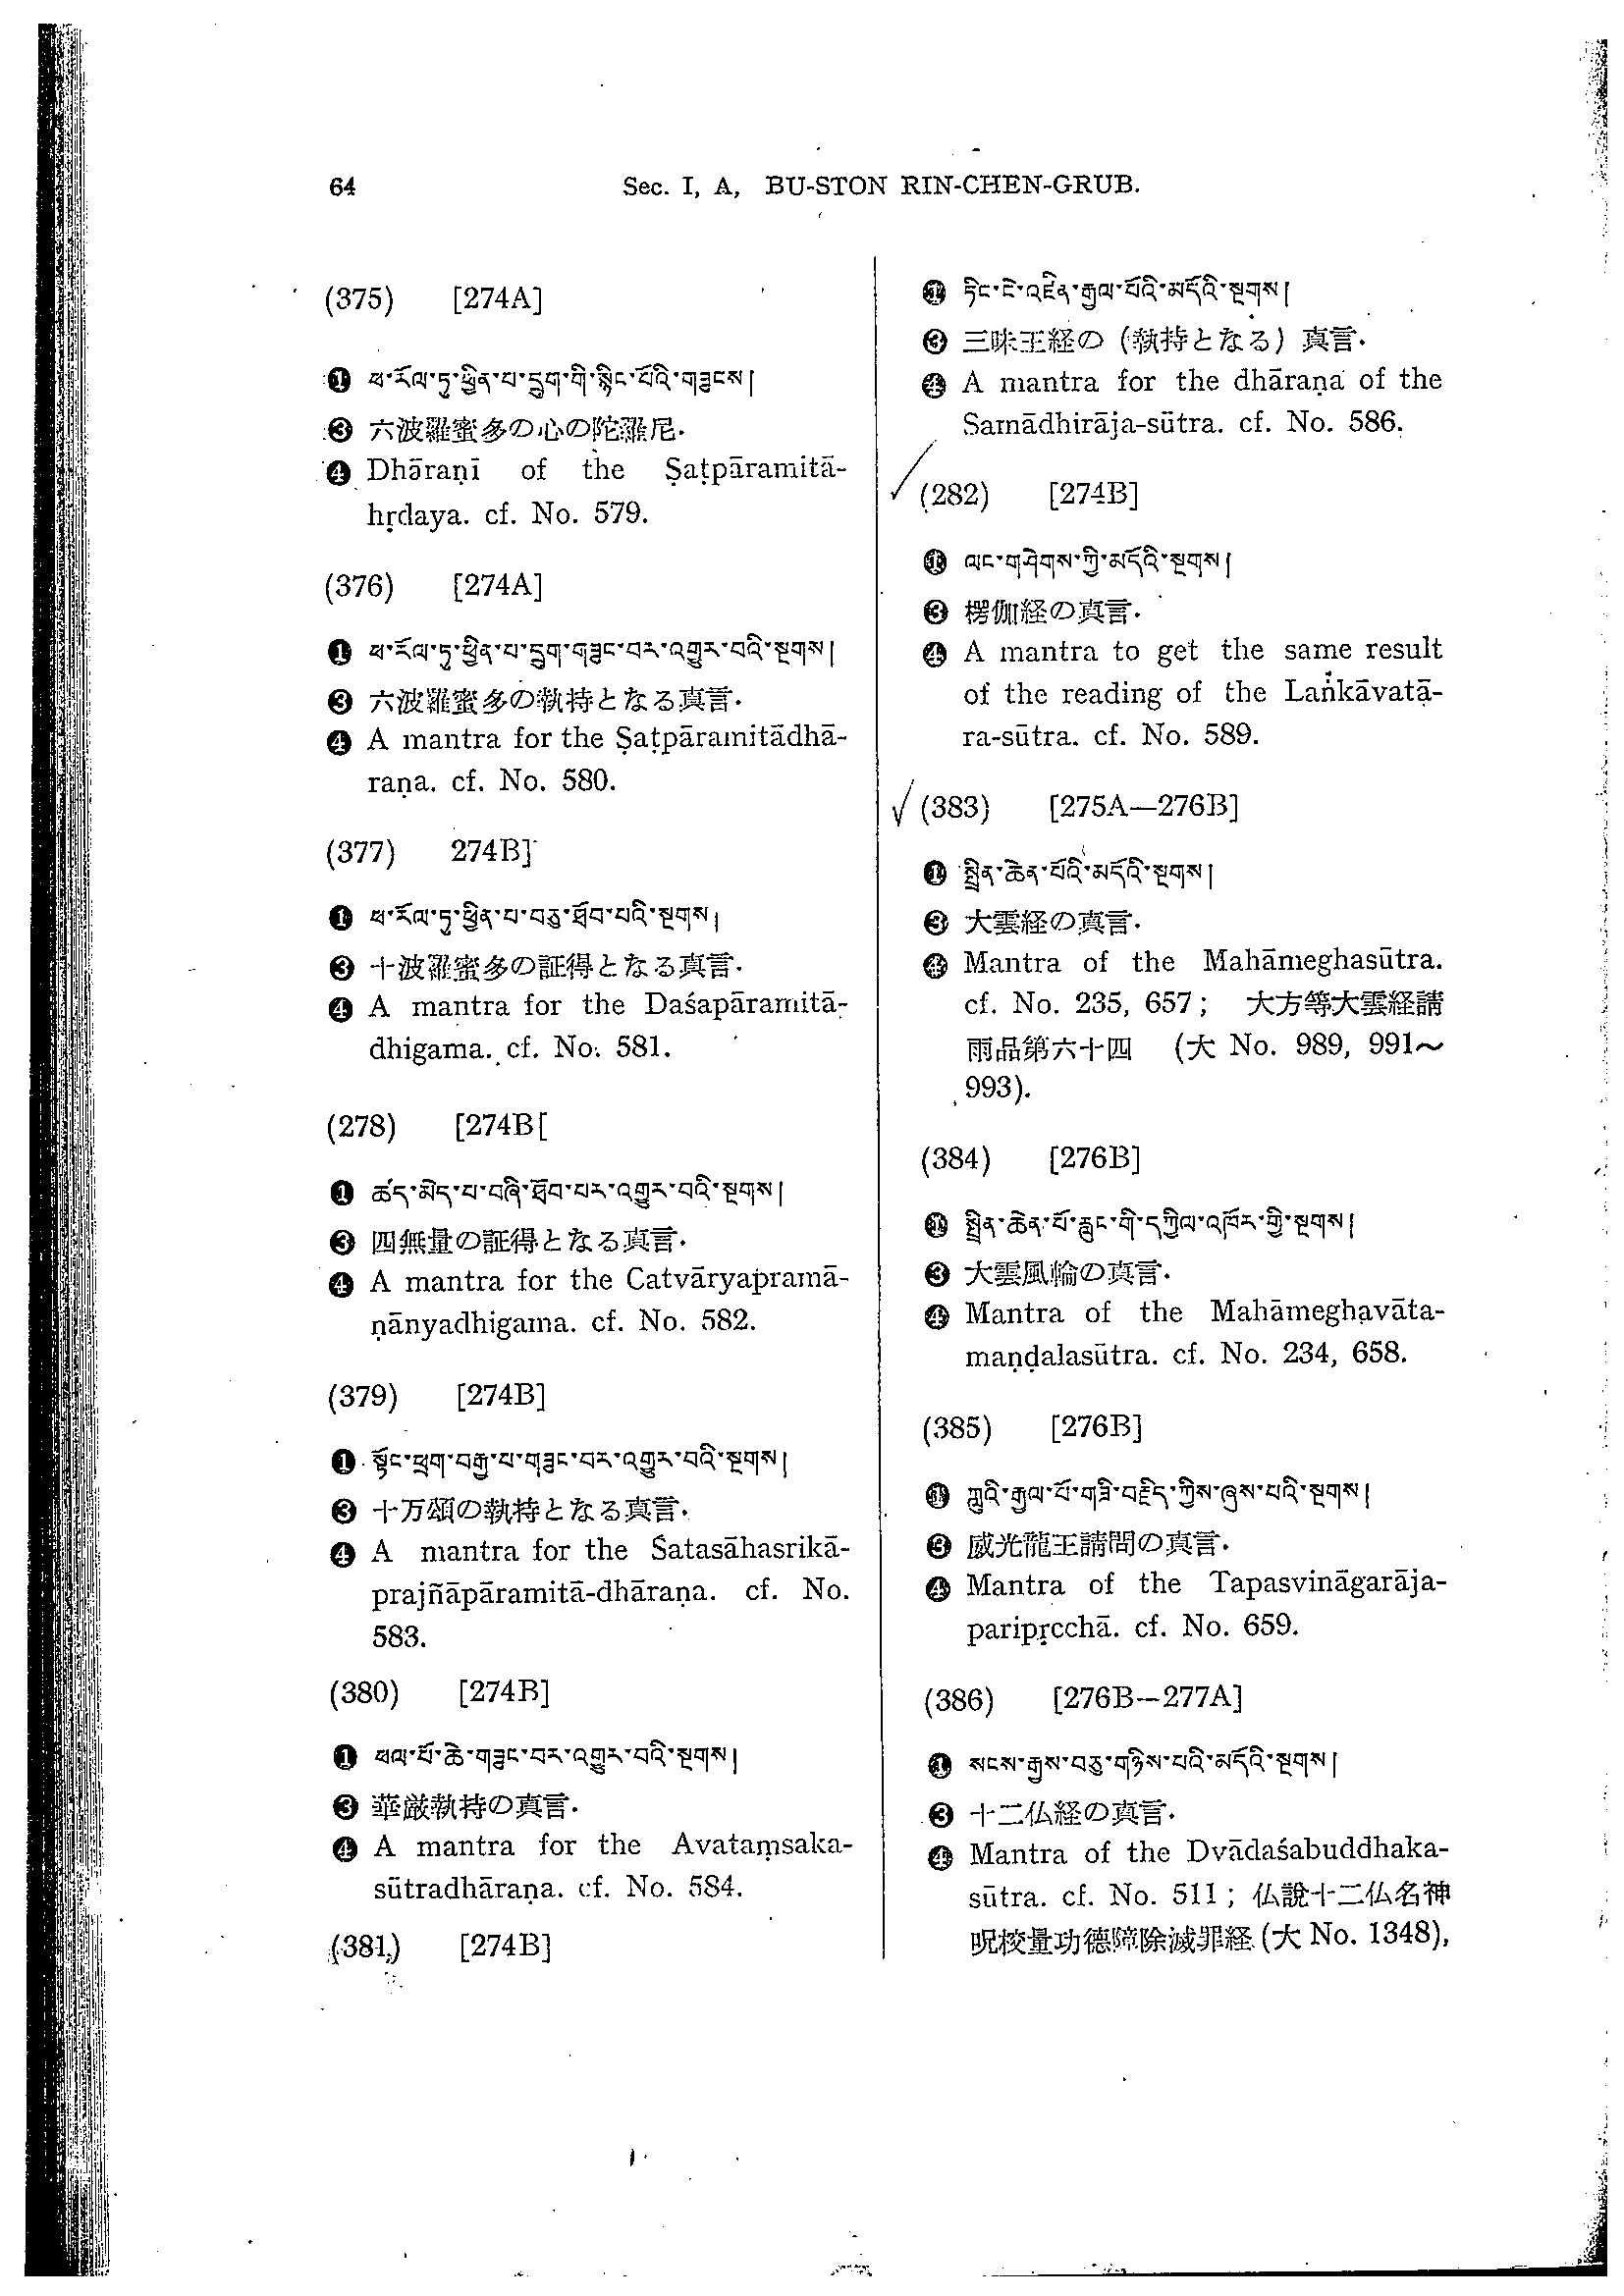 64 Sec. I, A, BU-STON RIN-CHEN-GRUB.
(375) [274A]
❶ ཕ་རོལ་ཏུ་ཕྱིན་པ་དྲུག་གི་སྙིང་པོའི་གཟུངས།
❸ 六波羅蜜多の心の陀羅尼.
❹ Dhāraṇī of the Ṣaṭpāramitā-
hṛdaya. cf. No. 579.
(376) [274A]
❶ ཕ་རོལ་ཏུ་ཕྱིན་པ་དྲུག་གཟུང་བར་འགྱུར་བའི་སྔགས།
❸ 六波羅蜜多の執持となる真言.
❹ A mantra for the Ṣaṭpāramitādhā-
raṇa. cf. No. 580.
(377) 274B]
❶ ཕ་རོལ་ཏུ་ཕྱིན་པ་བཅུ་ཐོབ་པའི་སྔགས།
❸ 十波羅蜜多の証得となる真言.
❹ A mantra for the Daśapāramitā-
dhigama. cf. No. 581.
(278) [274B[
❶ ཚད་མེད་པ་བཞི་ཐོབ་པར་འགྱུར་བའི་སྔགས།
❸ 四無量の証得となる真言.
❹ A mantra for the Catvāryapramā-
ṇānyadhigama. cf. No. 582.
(379) [274B]
❶ སྟོང་ཕྲག་བརྒྱ་པ་གཟུང་བར་འགྱུར་བའི་སྔགས།
❸ 十万頌の執持となる真言.
❹ A mantra for the Śatasāhasrikā-
prajñāpāramitā-dhāraṇa. cf. No.
583.
(380) [274B]
❶ ཕལ་པོ་ཆེ་གཟུང་བར་འགྱུར་བའི་སྔགས།
❸ 華厳執持の真言.
❹ A mantra for the Avataṃsaka-
sūtradhāraṇa. cf. No. 584.
(381) [274B]
❶ ཏིང་ངེ་འཛིན་རྒྱལ་པོའི་མདོའི་སྔགས།
❸ 三昧王経の (執持となる) 真言.
❹ A mantra for the dhāraṇa of the
Samādhirāja-sūtra. cf. No. 586.
(282) [274B]
❶ ལང་གཤེགས་ཀྱི་མདོའི་སྔགས།
❸ 楞伽経の真言.
❹ A mantra to get the same result
of the reading of the Laṅkāvatā-
ra-sūtra. cf. No. 589.
(383) [275A—276B]
❶ སྤྲིན་ཆེན་པོའི་མདོའི་སྔགས།
❸ 大雲経の真言.
❹ Mantra of the Mahāmeghasūtra.
cf. No. 235, 657; 大方等大雲経請
雨品第六十四 (大 No. 989, 991～
993).
(384) [276B]
❶ སྤྲིན་ཆེན་པོ་རླུང་གི་དཀྱིལ་འཁོར་གྱི་སྔགས།
❸ 大雲風輪の真言.
❹ Mantra of the Mahāmeghavāta-
maṇḍalasūtra. cf. No. 234, 658.
(385) [276B]
❶ ཀླུའི་རྒྱལ་པོ་གཟི་བརྗིད་ཀྱིས་ཞུས་པའི་སྔགས།
❸ 威光龍王請問の真言.
❹ Mantra of the Tapasvināgarāja-
paripṛcchā. cf. No. 659.
(386) [276B—277A]
❶ སངས་རྒྱས་བཅུ་གཉིས་པའི་མདོའི་སྔགས།
❸ 十二仏経の真言.
❹ Mantra of the Dvādaśabuddhaka-
sūtra. cf. No. 511; 仏說十二仏名神
呪校量功徳障除滅罪経 (大 No. 1348),